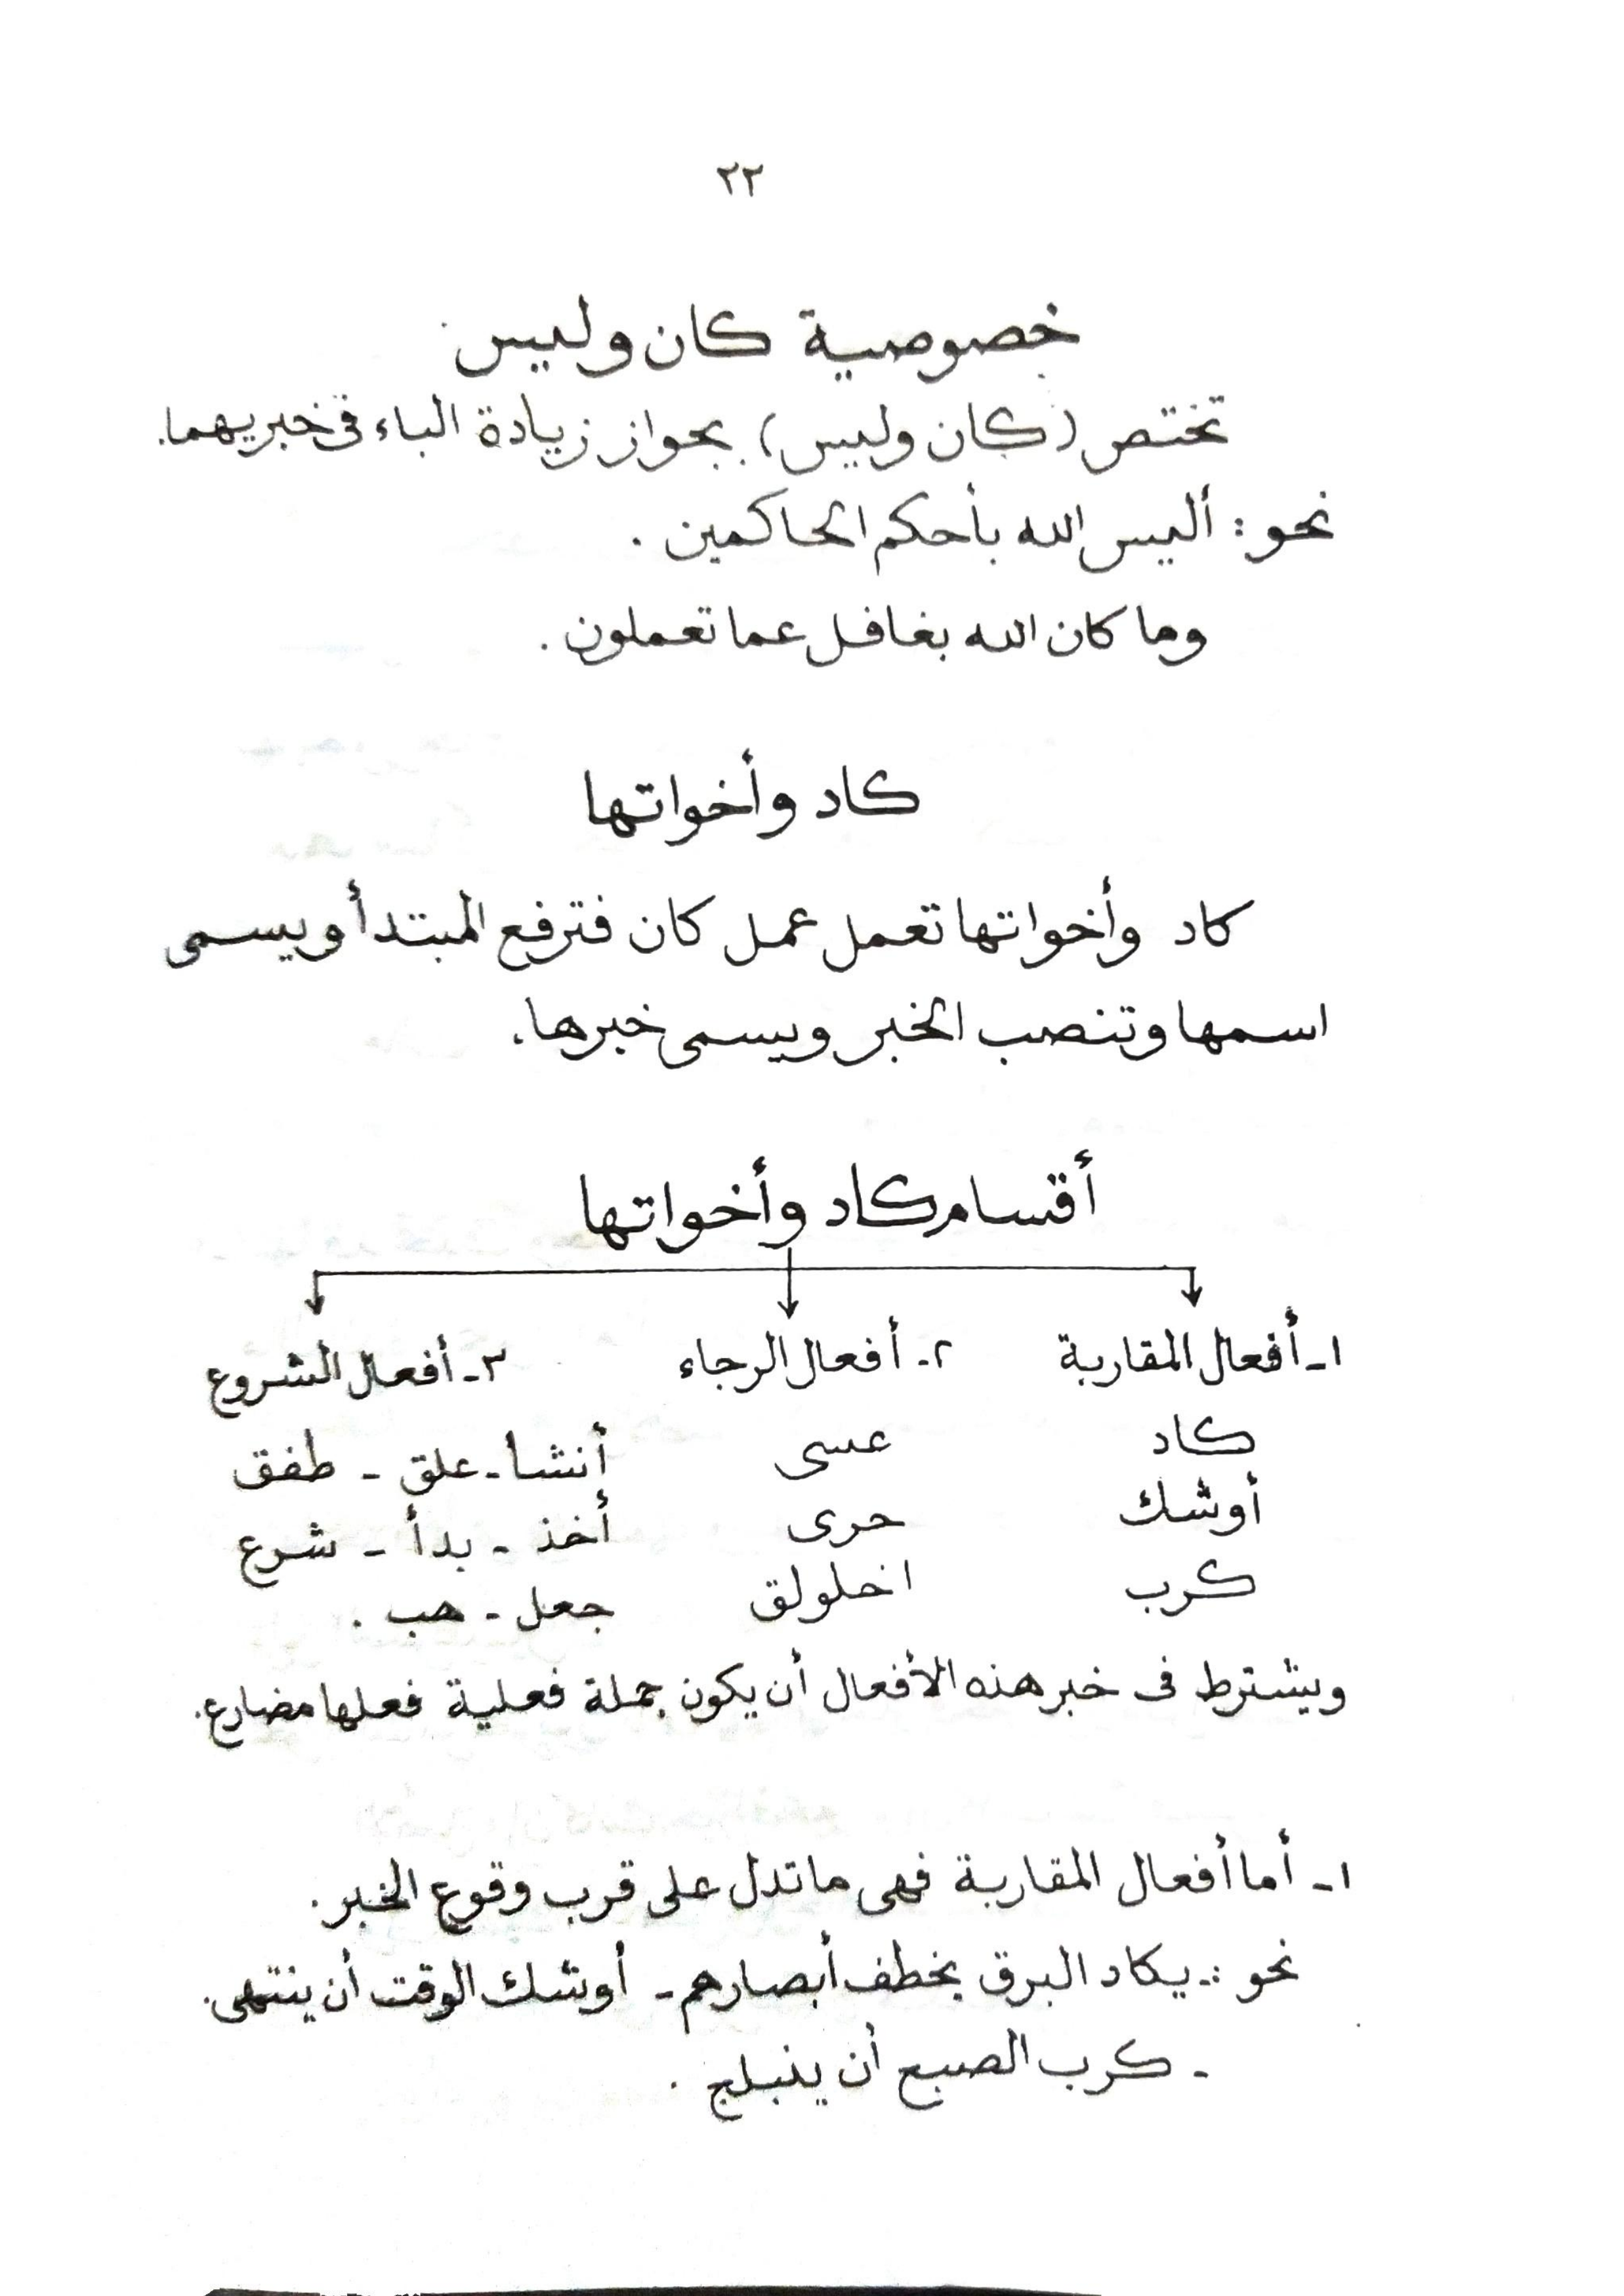 ٢٢
خصوصية كان وليس
تختص (كان وليس) بجواز زيادة الباء فى خبريهما.
نحو : أليس الله بأحكم الحاكمين .
وما كان الله بغافل عما تعملون .
كاد وأخواتها
كاد وأخواتها تعمل عمل كان فترفع المبتدأ ويسمى
اسمها وتنصب الخبر ويسمى خبرها.
أقسام كاد وأخواتها
١- أفعال المقاربة ٢- أفعال الرجاء ٣- أفعال الشروع
كاد عسى أنشأ - علق - طفق
أوشك حرى أخذ - بدأ - شرع
كرب اخلولق جعل - هب .
ويشترط فى خبر هذه الأفعال أن يكون جملة فعلية فعلها مضارع.
١- أما أفعال المقاربة فهى ما تدل على قرب وقوع الخبر.
نحو :- يكاد البرق يخطف أبصارهم - أوشك الوقت أن ينتهى.
- كرب الصبح أن ينبلج .